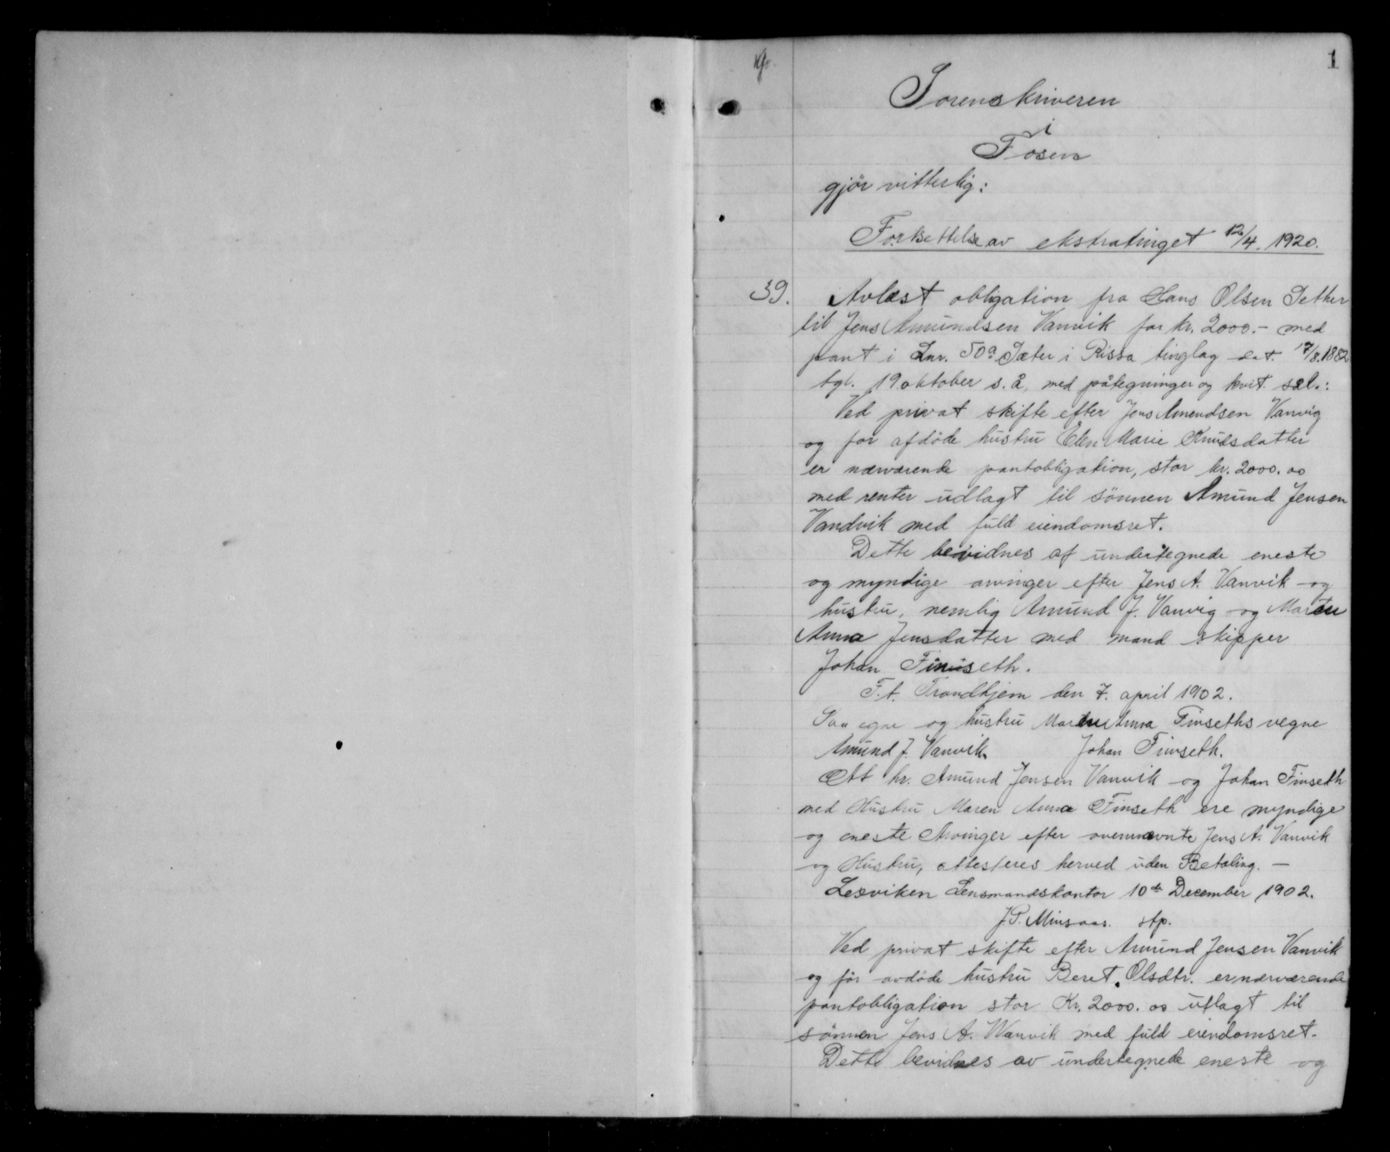 1
Sorenskriveren
i
Fosen
gjör vitterlig:
Fortsettelse av ekstratinget 12/4. 1920.
39. Avlæst obligation fra Hans Olsen Sether
til Jens Amundsen Vanvik for kr. 2000.- med
pant i Lnr. 50a Sæter i Rissa tinglag dat. 17/8. 1882
tgl. 19 oktober s. å, med påtegninger og kvit. sål.:
Ved privat skifte efter Jens Amundsen Vanvig
og før afdöde hustru Elen Marie Knudsdatter
er nærværende pantobligation, stor kr. 2000.00
med renter udlagt til sönnen Amund Jensen
Vandvik med fuld eiendomsret.
Dette bevidnes af undertegnede eneste
og myndige arvinger efter Jens A. Vanvik og
hustru, nemlig Amund J. Vanvig og Maren
Anna Jensdatter med mand skipper
Johan Finseth.
F.t. Trondhjem den 7. april 1902.
egne og hustru Maren Anna Finseths vegne
Amund J. Vanvik. Johan Finseth.
At hr. Amund Jensen Vanvik og Johan Finseth
med Hustru Maren Anna Finseth ere myndige
og eneste Arvinger efter ovennævnte Jens A. Vanvik
og Hustru, attesteres herved uden Betaling. -
Lexviken Lensmandskontor 10de December 1902.
J.P. Minsaas. stp.
Ved privat skifte efter Amund Jensen Vanvik
og før avdöde hustru Beret Olsdtr. er nærværende
pantobligation stor Kr. 2000.00 utlagt til
sönnen Jens A. Wanvik med fuld eiendomsret.
Dette bevidnes av undertegnede eneste og